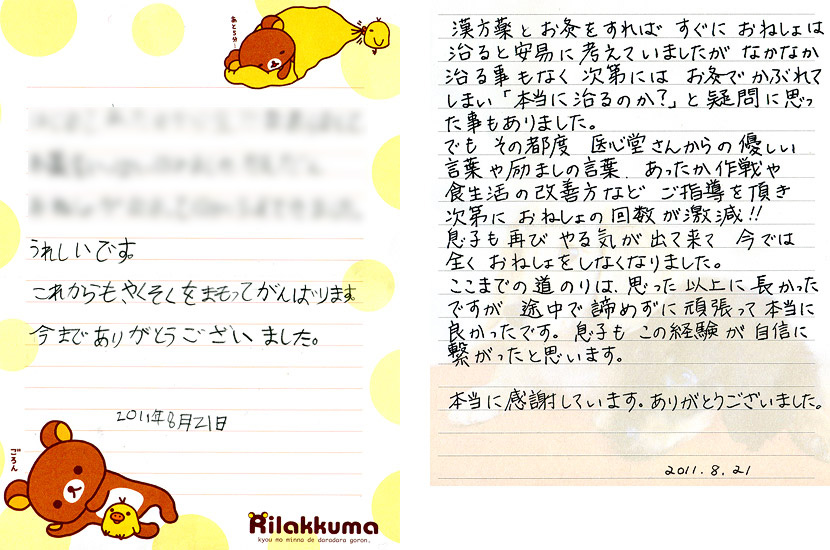 あと5分…
うれしいです。
これからもやくそくをまもってがんばります
今までありがとうございました。
2011年8月21日
ごろん
Rilakkuma
kyou mo minna de daradara goron.
漢方薬とお灸をすれば すぐに おねしょは
治ると安易に考えていましたが なかなか
治る事もなく 次第には お灸でかぶれて
しまい「本当に治るのか?」と疑問に思っ
た事もありました。
でも その都度 医心堂さんからの優しい
言葉や励ましの言葉、あったか作戦や
食生活の改善方など ご指導を頂き
次第に おねしょの回数が激減!!
息子も再び やる気が出て来て 今では
全く おねしょをしなくなりました。
ここまでの道のりは、思った以上に長かった
ですが 途中で諦めずに頑張って本当に
良かったです。息子も この経験が自信に
繋がったと思います。
本当に感謝しています。ありがとうございました。
2011.8.21